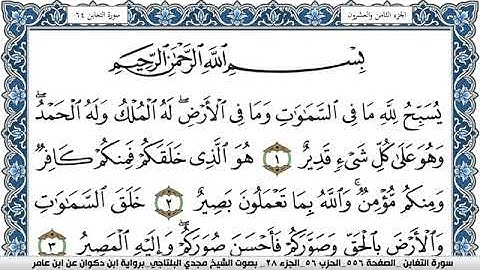 الجزء الثامن والعشرون
سورة التغابن ٦٤
بِسْمِ اللَّهِ الرَّحْمَٰنِ الرَّحِيمِ
يُسَبِّحُ لِلَّهِ مَا فِي السَّمَٰوَٰتِ وَمَا فِي الْأَرْضِ ۖ لَهُ الْمُلْكُ وَلَهُ الْحَمْدُ ۖ
وَهُوَ عَلَىٰ كُلِّ شَيْءٍ قَدِيرٌ ١ هُوَ الَّذِي خَلَقَكُمْ فَمِنكُمْ كَافِرٌ
وَمِنكُم مُّؤْمِنٌ ۚ وَاللَّهُ بِمَا تَعْمَلُونَ بَصِيرٌ ٢ خَلَقَ السَّمَٰوَٰتِ
وَالْأَرْضَ بِالْحَقِّ وَصَوَّرَكُمْ فَأَحْسَنَ صُوَرَكُمْ ۖ وَإِلَيْهِ الْمَصِيرُ ٣
سورة التغابن _ الصفحة ٥٥٦_ الحزب ٥٦_ الجزء ٢٨_ بصوت الشيخ مجدي البلتاجي_ برواية ابن ذكوان عن ابن عامر